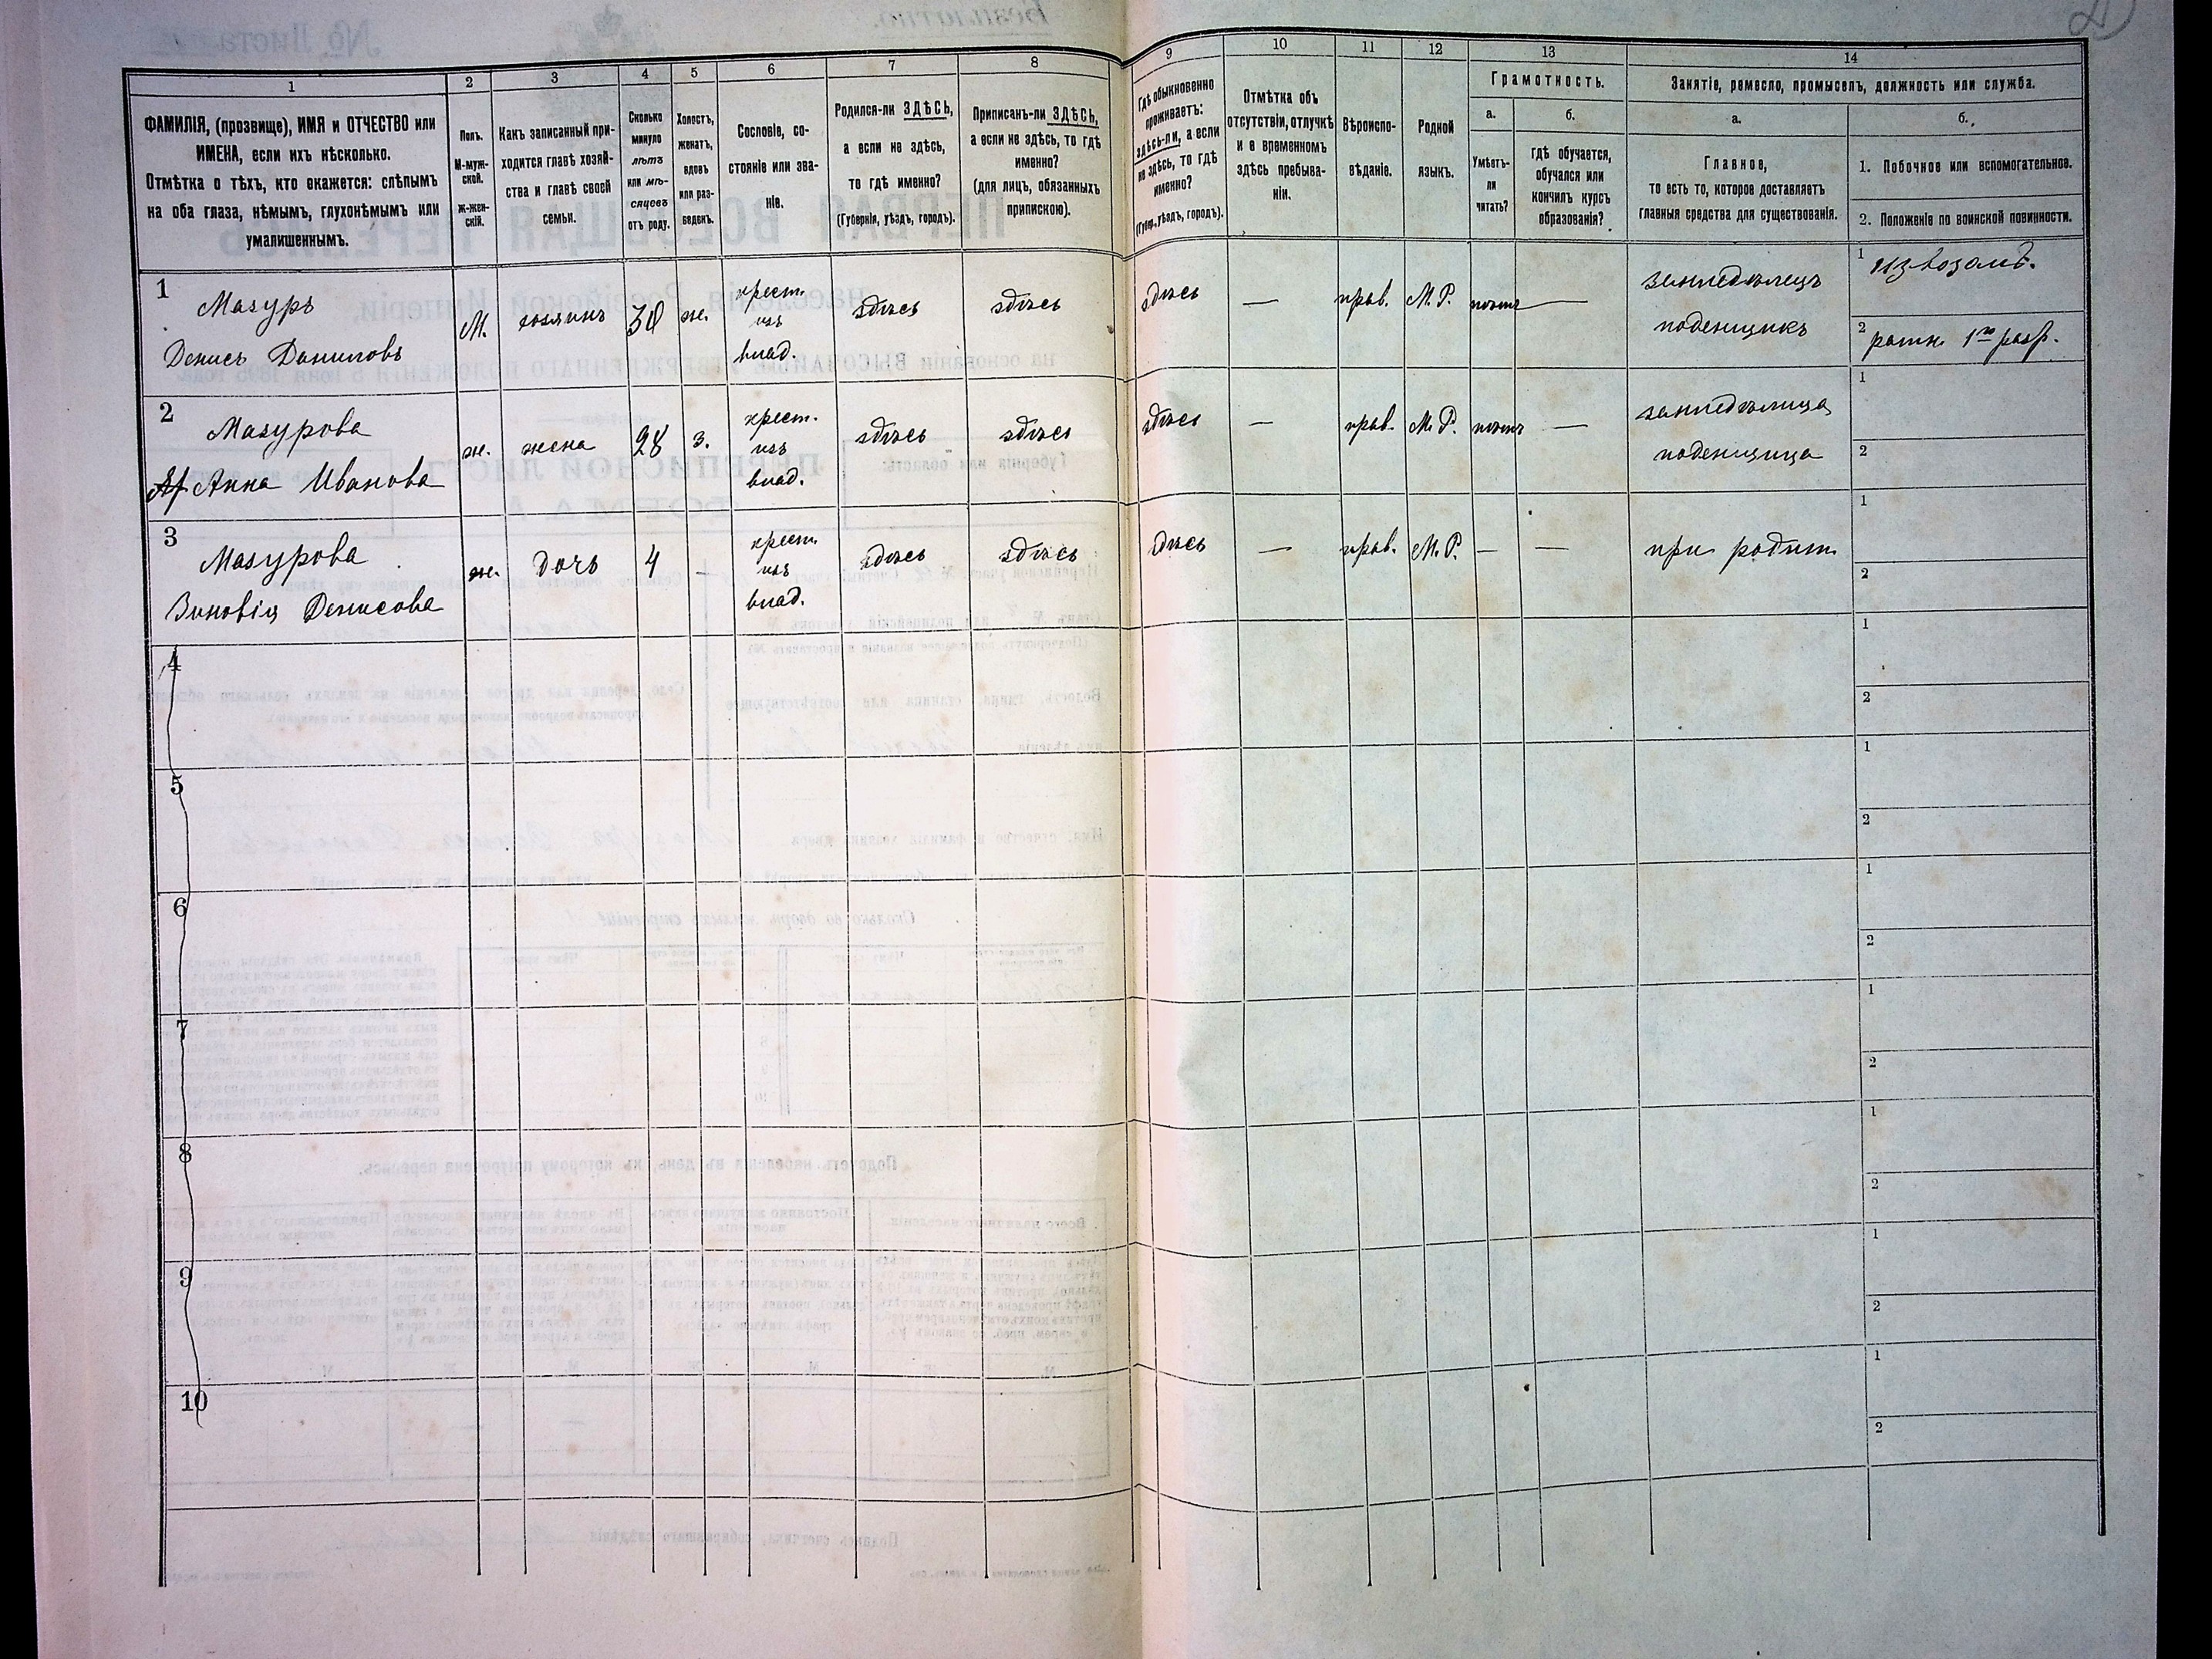 1 2 3 4 5 6 7 8 9 10 11 12 13 14
ФАМИЛІЯ, (прозвище), ИМЯ и ОТЧЕСТВО или
ИМЕНА, если ихъ нѣсколько.
Отмѣтка о тѣхъ, кто окажется: слѣпымъ
на оба глаза, нѣмымъ, глухонѣмымъ или
умалишеннымъ.
Полъ.
М-муж-
ской.
Ж-жен-
скій.
Какъ записанный при-
ходится главѣ хозяй-
ства и главѣ своей
семьи.
Сколько
минуло
лѣтъ
или мѣ-
сяцевъ
отъ роду.
Холостъ,
женатъ,
вдовъ
или раз-
веденъ.
Сословіе, со-
стояніе или зва-
ніе.
Родился-ли ЗДѢСЬ,
а если не здѣсь,
то гдѣ именно?
(Губернія, уѣздъ, городъ).
Приписанъ-ли ЗДѢСЬ,
а если не здѣсь, то гдѣ
именно?
(для лицъ, обязанныхъ
припискою).
Гдѣ обыкновенно
проживаетъ:
здѣсь-ли, а если
не здѣсь, то гдѣ
именно?
(Губер., уѣздъ, городъ).
Отмѣтка объ
отсутствіи, отлучкѣ
и о временномъ
здѣсь пребыва-
ніи.
Вѣроиспо-
вѣданіе.
Родной
языкъ.
Грамотность.
а.
Умѣетъ-
ли
читать?
б.
гдѣ обучается,
обучался или
кончилъ курсъ
образованія?
Занятіе, ремесло, промыселъ, должность или служба.
а.
Главное,
то есть то, которое доставляетъ
главныя средства для существованія.
б.
1. Побочное или вспомогательное.
2. Положеніе по воинской повинности.
1
Мазуръ
Денисъ Даниловъ
М.
хозяинъ
ж.
крест.
изъ
влад.
здѣсь
здѣсь
здѣсь
—
прав.
М. Р.
—
земледѣлецъ
поденщикъ
1 извозомъ.
2 ратн. 1го разр.
2
Мазурова
Анна Иванова
ж.
жена
28
з.
крест.
изъ
влад.
здѣсь
здѣсь
здѣсь
—
прав.
М. Р.
—
земледѣлица
поденщица
1
2
3
Мазурова
Зиновія Денисова
ж.
дочь
4
—
крест.
изъ
влад.
здѣсь
здѣсь
здѣсь
—
прав.
М. Р.
—
—
при родит.
1
2
4
1
2
5
1
2
6
1
2
7
1
2
8
1
2
9
1
2
10
1
2